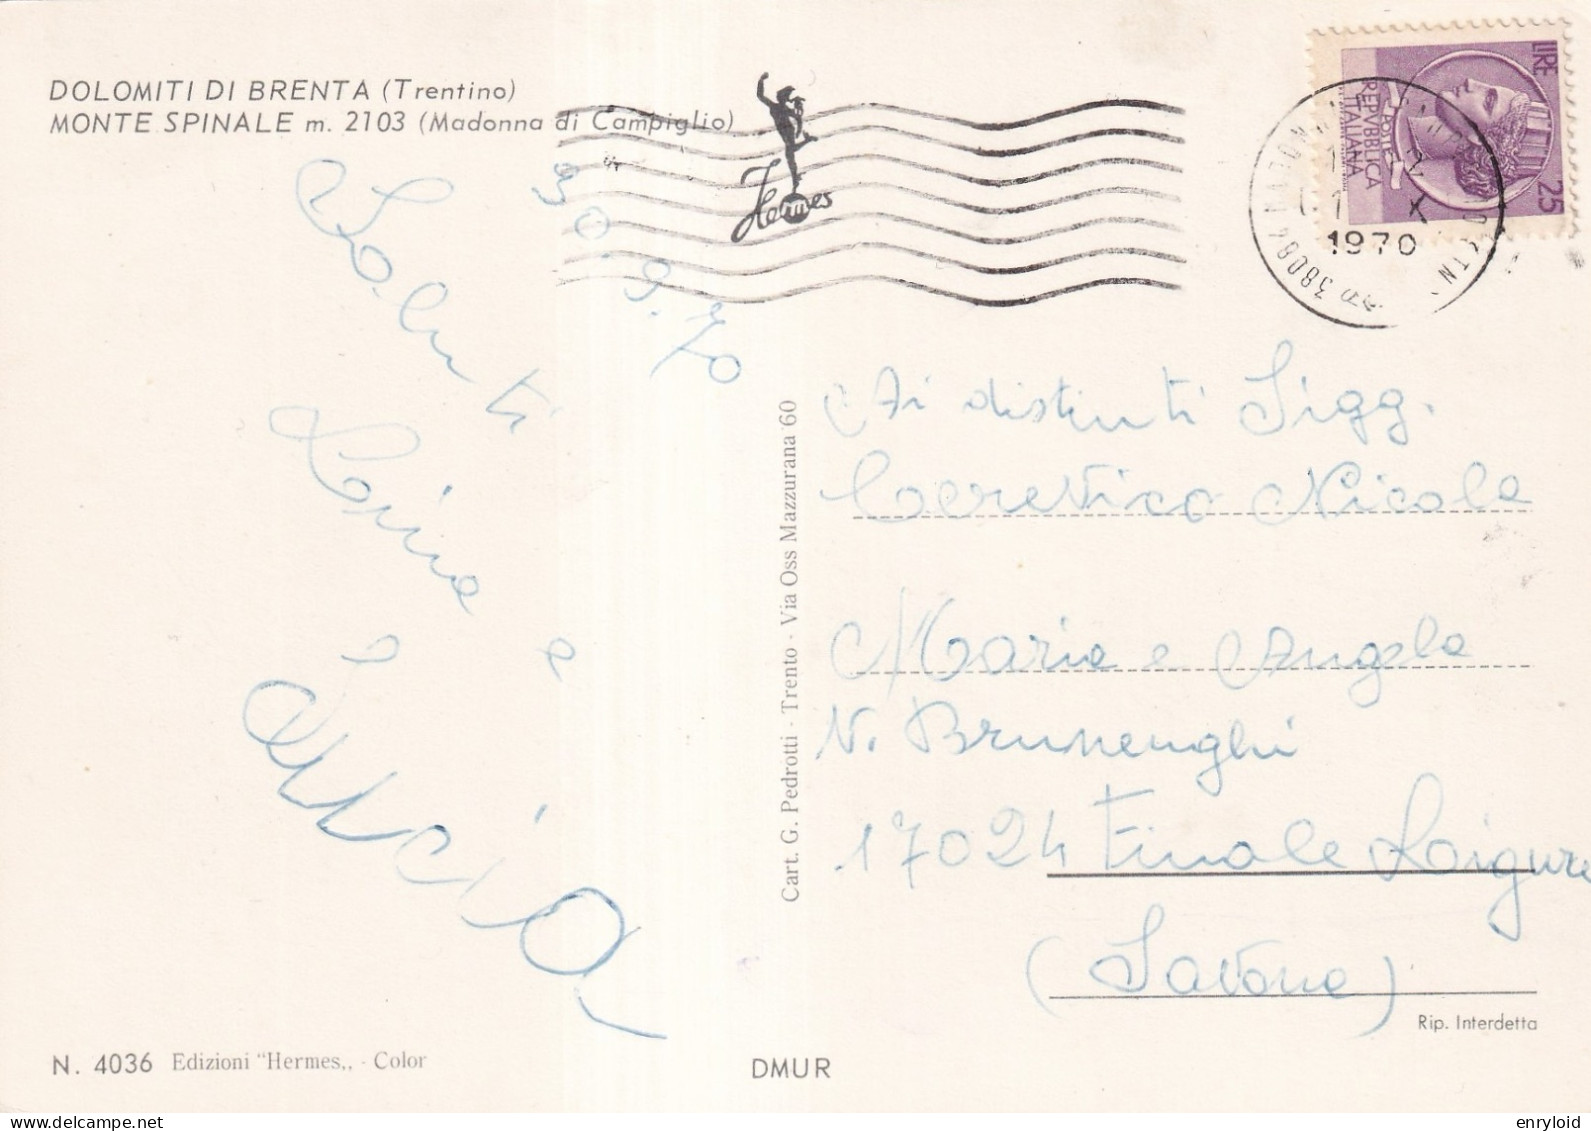 DOLOMITI DI BRENTA (Trentino)
MONTE SPINALE m. 2103 (Madonna di Campiglio)
Hermes
LIRE 25
REPVBBLICA
ITALIANA
38084
X
1970
30.9.70
Saluti
Luina e
Ai distinti Sigg.
Nicola
Maria e Angela
V. Brunenghi
17024 Finale Ligure
(Savona)
Cart. G. Pedrotti - Trento - Via Oss Mazzurana 60
Rip. Interdetta
N. 4036 Edizioni "Hermes,, - Color
DMUR
enryloid